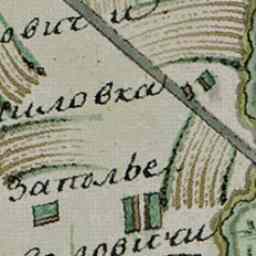 ович и
иловка
Заполье
ловичи